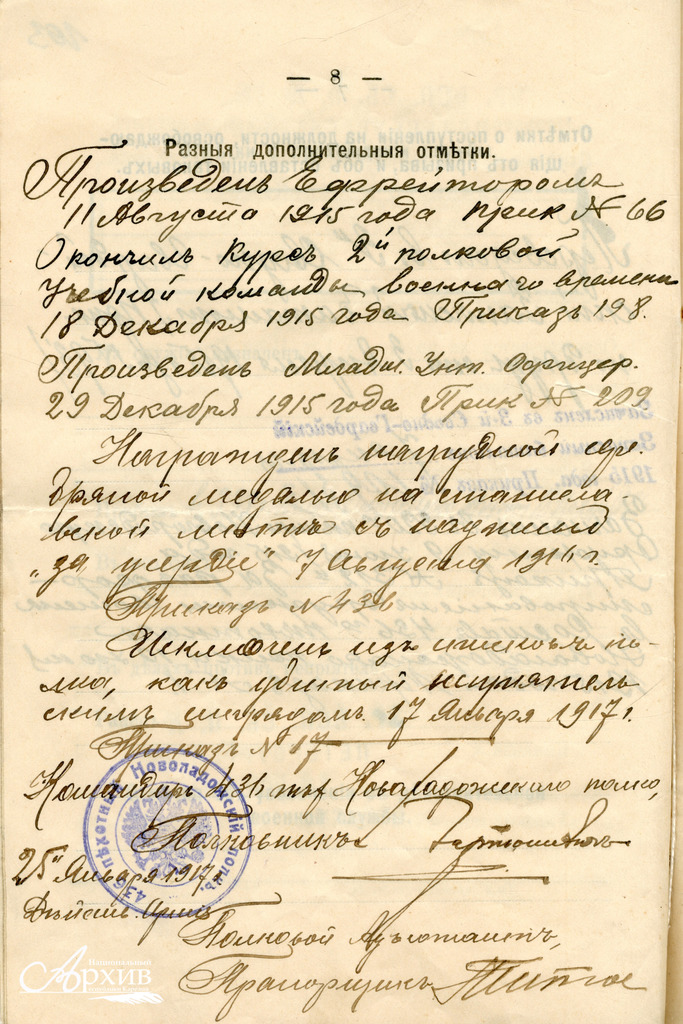 — 8 —
Разныя дополнительныя отмѣтки.
Произведенъ Ефрейторомъ
11 Августа 1915 года Прик № 66
Окончилъ Курсъ 2й полковой
Учебной команды военнаго времени
18 Декабря 1915 года Приказъ 198.
Произведенъ Младш. Унт. Офицер.
29 Декабря 1915 года Прик № 209
Награжденъ нагрудной сере-
бряной медалью на станисла-
вской лентѣ съ надписью
„за усердіе" 7 Августа 1916 г.
Приказъ № 436
Исключенъ изъ списковъ по-
лка, какъ убитый непріятель
скимъ снарядомъ 17 Января 1917 г.
Приказъ № 17
Командиръ 436 пѣх Новоладожскаго полка,
Полковникъ
25 Января 1917 г.
Дѣйств. Армія
Полковой Адъютантъ,
Прапорщикъ Титов
436 пѣхотный Новоладожскій полкъ
Национальный
Архив